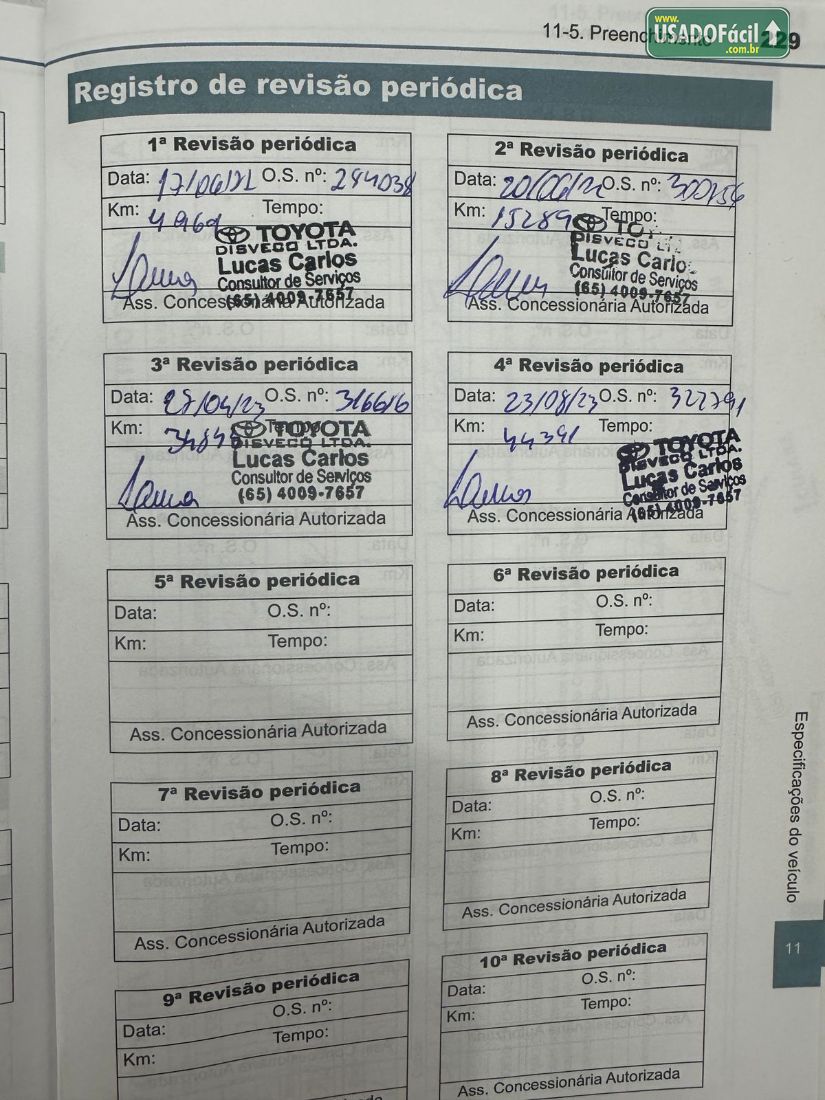 www.
USADOFácil
.com.br
11-5. Preenchimento
229
Registro de revisão periódica
1ª Revisão periódica
Data: 17/06/21 O.S. nº: 294038
Km: 4969 Tempo:
TOYOTA
DISVECO LTDA.
Lucas Carlos
Consultor de Serviços
(65) 4009-7657
Ass. Concessionária Autorizada
2ª Revisão periódica
Data: 20/06/22 O.S. nº: 300156
Km: 15289 Tempo:
TO
DISVECO LTDA.
Lucas Carlo
Consultor de Serviços
(65) 4009-7657
Ass. Concessionária Autorizada
3ª Revisão periódica
Data: 27/04/23 O.S. nº: 316616
Km: Tempo:
TOYOTA
DISVECO LTDA.
Lucas Carlos
Consultor de Serviços
(65) 4009-7657
Ass. Concessionária Autorizada
4ª Revisão periódica
Data: 23/08/23 O.S. nº: 322791
Km: 44391 Tempo:
TOYOTA
DISVECO LTDA.
Lucas Carlos
Consultor de Serviços
(65) 4009-7657
Ass. Concessionária Autorizada
5ª Revisão periódica
Data: O.S. nº:
Km: Tempo:
Ass. Concessionária Autorizada
6ª Revisão periódica
Data: O.S. nº:
Km: Tempo:
Ass. Concessionária Autorizada
7ª Revisão periódica
Data: O.S. nº:
Km: Tempo:
Ass. Concessionária Autorizada
8ª Revisão periódica
Data: O.S. nº:
Km: Tempo:
Ass. Concessionária Autorizada
9ª Revisão periódica
Data: O.S. nº:
Km: Tempo:
10ª Revisão periódica
Data: O.S. nº:
Km: Tempo:
Ass. Concessionária Autorizada
Especificações do veículo
11